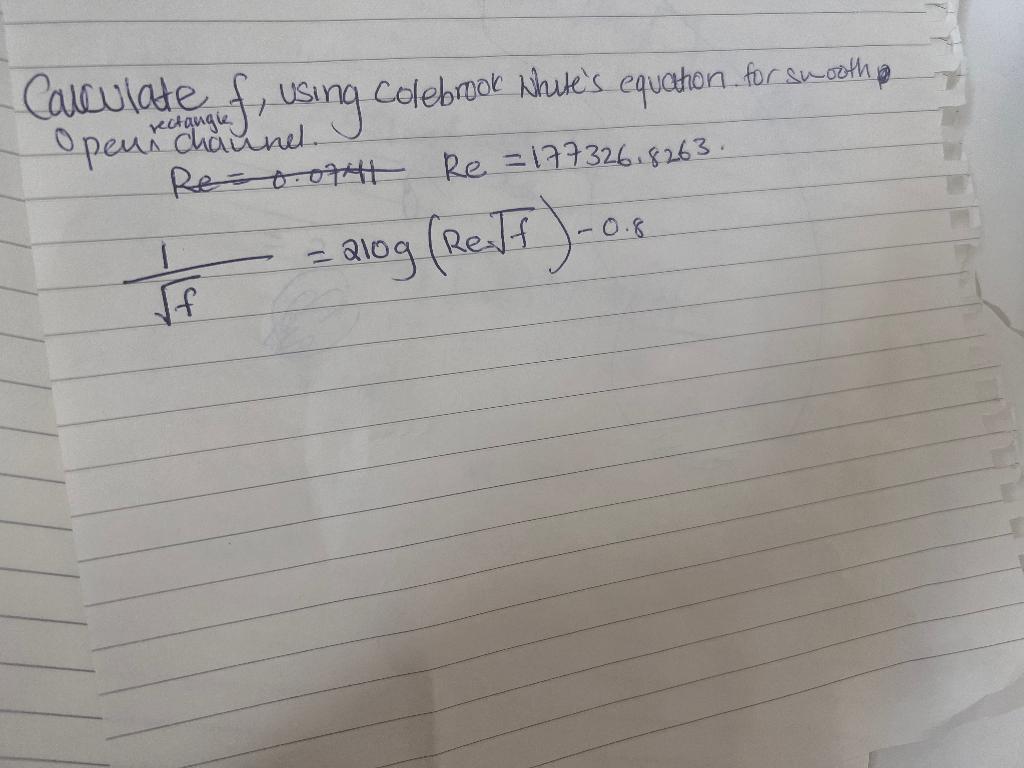 Calculate f, using Colebrook White's equation for smooth
Open rectangle channel.
Re = 0.0741 Re = 177326.8263.
1/√f = 2log (Re√f) - 0.8